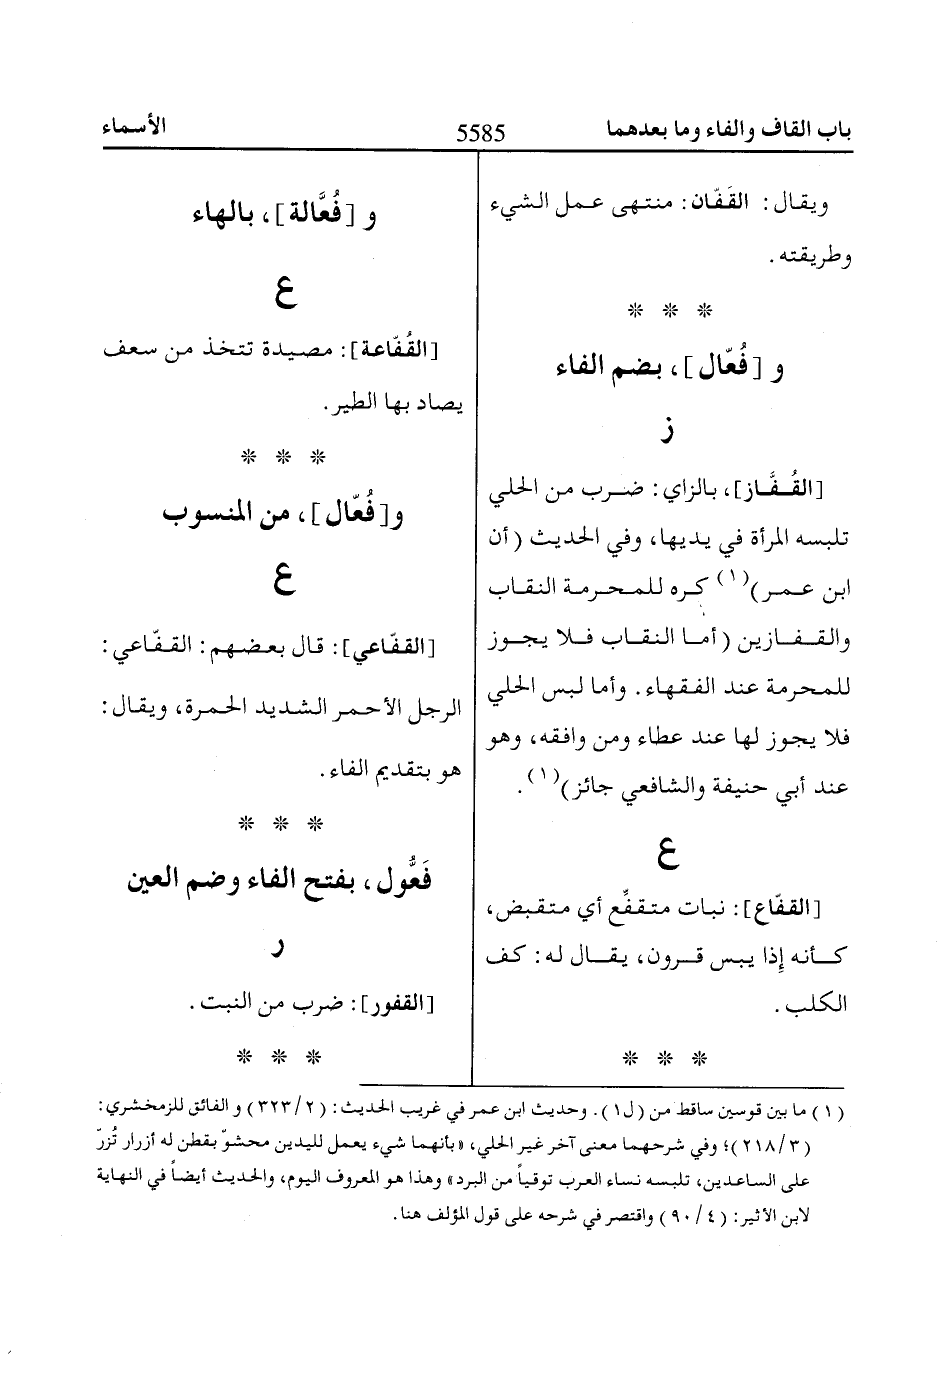 باب القاف والفاء وما بعدهما
5585
الأسماء
ويقال: القَفّان: منتهى عمل الشيء
وطريقته.
* * *
و [فُعّال]، بضم الفاء
ز
[القُـفَّـاز]، بالزاي: ضرب من الحلي
تلبسه المرأة في يديها، وفي الحديث (أن
ابن عمر)(١) كره للمحرمة النقاب
والقفازين (أما النقاب فلا يجوز
للمحرمة عند الفقهاء. وأما لبس الحلي
فلا يجوز لها عند عطاء ومن وافقه، وهو
عند أبي حنيفة والشافعي جائز)(١).
ع
[القفّاع]: نبات متقفِّع أي متقبض،
كأنه إذا يبس قرون، يقال له: كف
الكلب.
* * *
و [فُعَّالة]، بالهاء
ع
[القُفّاعة]: مصيدة تتخذ من سعف
يصاد بها الطير.
* * *
و[فُعّال]، من المنسوب
ع
[القفّاعي]: قال بعضهم: القفّاعي:
الرجل الأحمر الشديد الحمرة، ويقال:
هو بتقديم الفاء.
* * *
فَعُّول، بفتح الفاء وضم العين
ر
[القفور]: ضرب من النبت.
* * *
(١) ما بين قوسين ساقط من (ل١). وحديث ابن عمر في غريب الحديث: (٣٢٣/٢) و الفائق للزمخشري:
(٢١٨/٣)؛ وفي شرحهما معنى آخر غير الحلي، «بأنهما شيء يعمل لليدين محشوّ بقطن له أزرار تُزرّ
على الساعدين، تلبسه نساء العرب توقياً من البرد» وهذا هو المعروف اليوم، والحديث أيضاً في النهاية
لابن الأثير: (٩٠/٤) واقتصر في شرحه على قول المؤلف هنا.